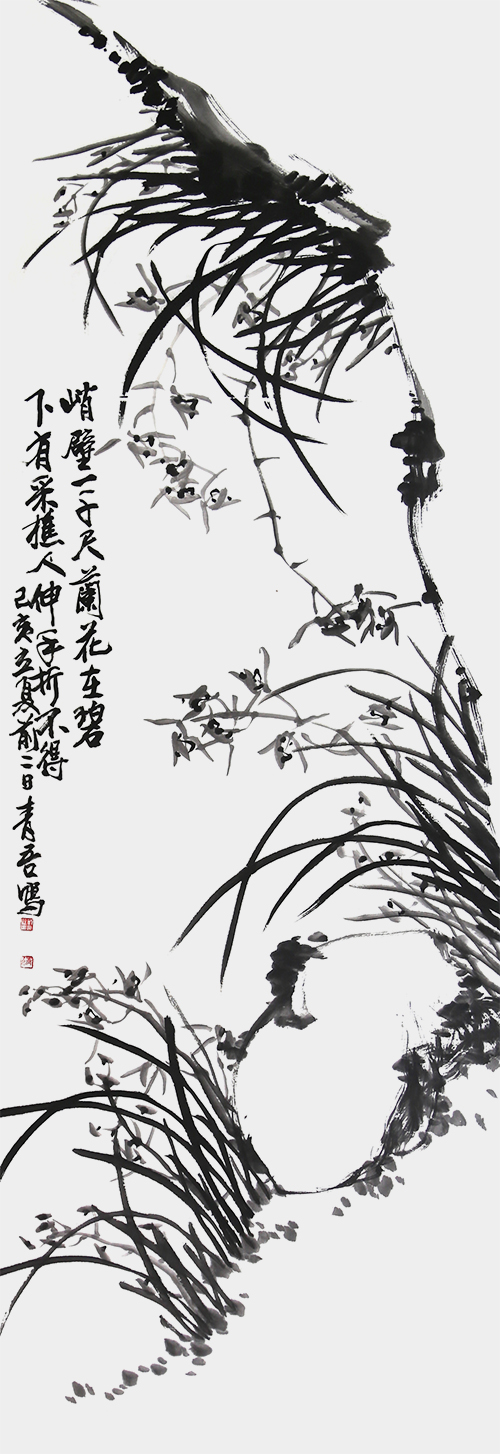 峭壁一千尺蘭花在碧
下有采樵人伸手折不得
己亥立夏前二日青吾寫